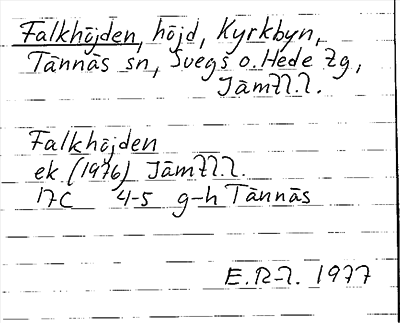 Falkhöjden, höjd, Kyrkbyn,
Tännäs sn, Svegs o. Hede tg,
Jämtl. l.
Falkhöjden
ek (1976) Jämtl. l.
17C 4-5 g-h Tännäs
E. R-l. 1977